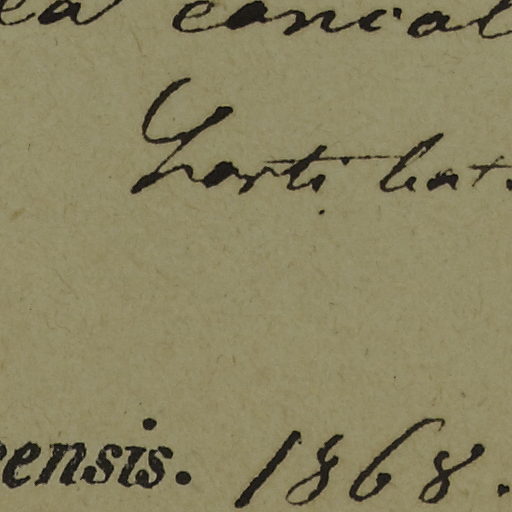 ea concol
Horti bot.
ensis. 1868.